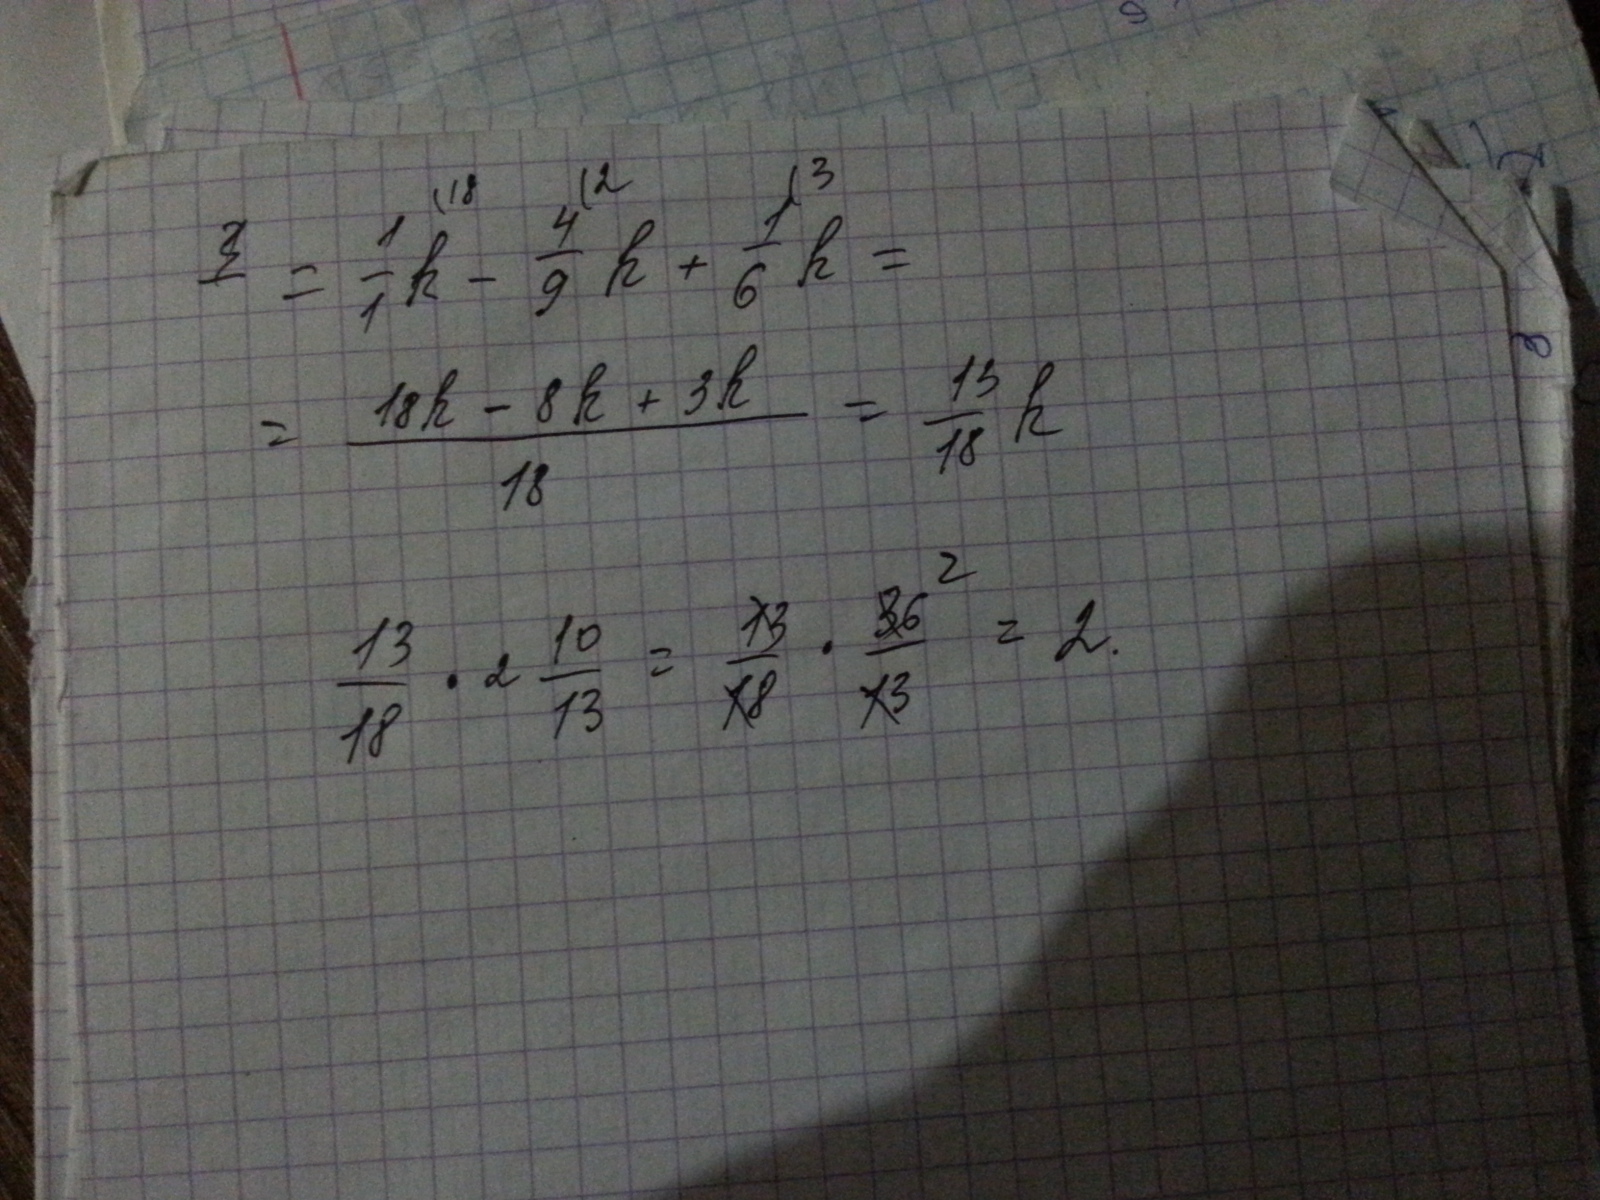 = 1/1 k - 4/9 k + 1/6 k = (18 (2 (3
= 18k - 8k + 3k / 18 = 13/18 k
13/18 · 2 10/13 = 13/18 · 36/13 2 = 2.